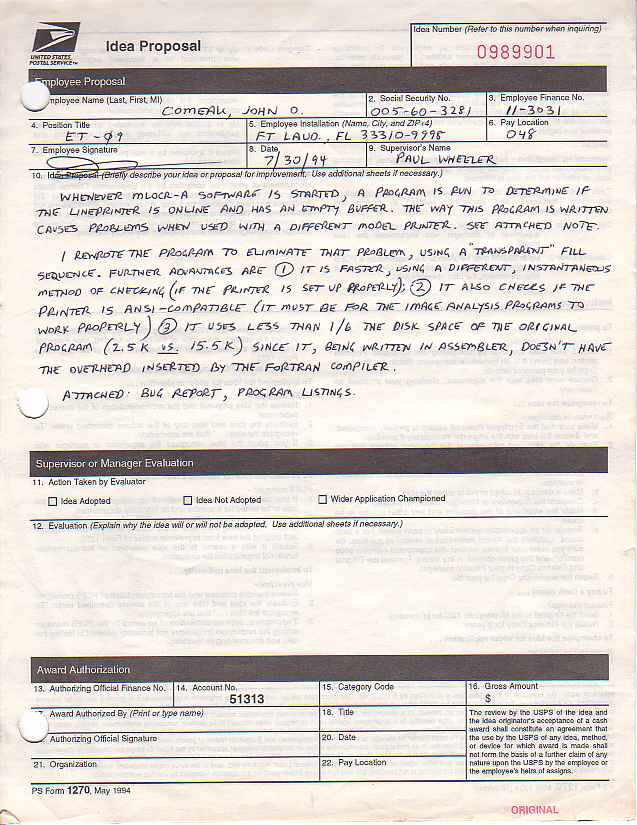 UNITED STATES
POSTAL SERVICE™
Idea Proposal
Idea Number (Refer to this number when inquiring)
0989901
Employee Proposal
Employee Name (Last, First, MI)
COMEAU, JOHN O.
2. Social Security No.
005-60-3281
3. Employee Finance No.
11-3031
4. Position Title
ET-09
5. Employee Installation (Name, City, and ZIP+4)
FT LAUD., FL 33310-9998
6. Pay Location
048
7. Employee Signature
8. Date
7/30/94
9. Supervisor's Name
PAUL WHEELER
10. Idea Proposal (Briefly describe your idea or proposal for improvement. Use additional sheets if necessary.)
WHENEVER MLOCR-A SOFTWARE IS STARTED, A PROGRAM IS RUN TO DETERMINE IF
THE LINEPRINTER IS ONLINE AND HAS AN EMPTY BUFFER. THE WAY THIS PROGRAM IS WRITTEN
CAUSES PROBLEMS WHEN USED WITH A DIFFERENT MODEL PRINTER. SEE ATTACHED NOTE.
I REWROTE THE PROGRAM TO ELIMINATE THAT PROBLEM, USING A "TRANSPARENT" FILL
SEQUENCE. FURTHER ADVANTAGES ARE ① IT IS FASTER, USING A DIFFERENT, INSTANTANEOUS
METHOD OF CHECKING (IF THE PRINTER IS SET UP PROPERLY); ② IT ALSO CHECKS IF THE
PRINTER IS ANSI-COMPATIBLE (IT MUST BE FOR THE IMAGE ANALYSIS PROGRAMS TO
WORK PROPERLY) ③ IT USES LESS THAN 1/6 THE DISK SPACE OF THE ORIGINAL
PROGRAM (2.5K VS. 15.5K) SINCE IT, BEING WRITTEN IN ASSEMBLER, DOESN'T HAVE
THE OVERHEAD INSERTED BY THE FORTRAN COMPILER.
ATTACHED: BUG REPORT, PROGRAM LISTINGS.
Supervisor or Manager Evaluation
11. Action Taken by Evaluator
Idea Adopted
Idea Not Adopted
Wider Application Championed
12. Evaluation (Explain why the idea will or will not be adopted. Use additional sheets if necessary.)
Award Authorization
13. Authorizing Official Finance No.
14. Account No.
51313
15. Category Code
16. Gross Amount
$
Award Authorized By (Print or type name)
18. Title
Authorizing Official Signature
20. Date
21. Organization
22. Pay Location
The review by the USPS of the idea and
the idea originator's acceptance of a cash
award shall constitute an agreement that
the use by the USPS of any idea, method,
or device for which award is made shall
not form the basis of a further claim of any
nature upon the USPS by the employee or
the employee's heirs of assigns.
PS Form 1270, May 1994
ORIGINAL